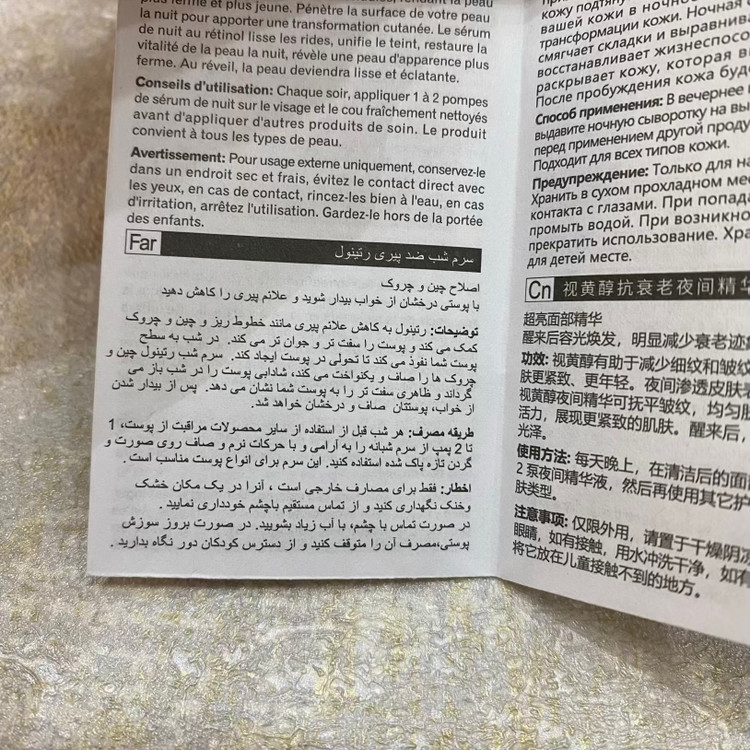 plus ferme et plus jeune. Pénètre la surface de votre peau
la nuit pour apporter une transformation cutanée. Le sérum
de nuit au rétinol lisse les rides, unifie le teint, restaure la
vitalité de la peau la nuit, révèle une peau d'apparence plus
ferme. Au réveil, la peau deviendra lisse et éclatante.
Conseils d'utilisation: Chaque soir, appliquer 1 à 2 pompes
de sérum de nuit sur le visage et le cou fraîchement nettoyés
avant d'appliquer d'autres produits de soin. Le produit
convient à tous les types de peau.
Avertissement: Pour usage externe uniquement, conservez-le
dans un endroit sec et frais, évitez le contact direct avec
les yeux, en cas de contact, rincez-les bien à l'eau, en cas
d'irritation, arrêtez l'utilisation. Gardez-le hors de la portée
des enfants.
Far سرم شب ضد پیری رتینول
اصلاح چین و چروک
با پوستی درخشان از خواب بیدار شوید و علائم پیری را کاهش دهید
توضیحات: رتینول به کاهش علائم پیری مانند خطوط ریز و چین و چروک
کمک می کند و پوست را سفت تر و جوان تر می کند. در شب به سطح
پوست شما نفوذ می کند تا تحولی در پوست ایجاد کند. سرم شب رتینول چین و
چروک ها را صاف و یکنواخت می کند، شادابی پوست را در شب باز می
گرداند و ظاهری سفت تر را به پوست شما نشان می دهد. پس از بیدار شدن
از خواب، پوستتان صاف و درخشان خواهد شد.
طریقه مصرف: هر شب قبل از استفاده از سایر محصولات مراقبت از پوست، 1
تا 2 پمپ از سرم شبانه را به آرامی و با حرکات نرم و صاف روی صورت و
گردن تازه پاک شده استفاده کنید. این سرم برای انواع پوست مناسب است.
اخطار: فقط برای مصارف خارجی است ، آنرا در یک مکان خشک
وخنک نگهداری کنید و از تماس مستقیم باچشم خودداری نمایید .
در صورت تماس با چشم، با آب زیاد بشویید. در صورت بروز سوزش
پوستی،مصرف آن را متوقف کنید و از دسترس کودکان دور نگاه بدارید .
кожу подтяну
вашей кожи в ночное
трансформации кожи. Ночная с
смягчает складки и выравнива
восстанавливает жизнеспосо
раскрывает кожу, которая в
После пробуждения кожа буд
Способ применения: В вечернее
выдавите ночную сыворотку на вы
перед применением другой проду
Подходит для всех типов кожи.
Предупреждение: Только для на
Хранить в сухом прохладном мес
контакта с глазами. При попада
промыть водой. При возникно
прекратить использование. Хра
для детей месте.
Cn 视黄醇抗衰老夜间精华
超亮面部精华
醒来后容光焕发，明显减少衰老迹象
功效: 视黄醇有助于减少细纹和皱纹
肤更紧致、更年轻。夜间渗透皮肤表
视黄醇夜间精华可抚平皱纹，均匀肤
活力，展现更紧致的肌肤。醒来后，
光泽。
使用方法: 每天晚上，在清洁后的面部
2 泵夜间精华液，然后再使用其它护
肤类型。
注意事项: 仅限外用，请置于干燥阴凉
眼睛，如有接触，用水冲洗干净，如有
将它放在儿童接触不到的地方。